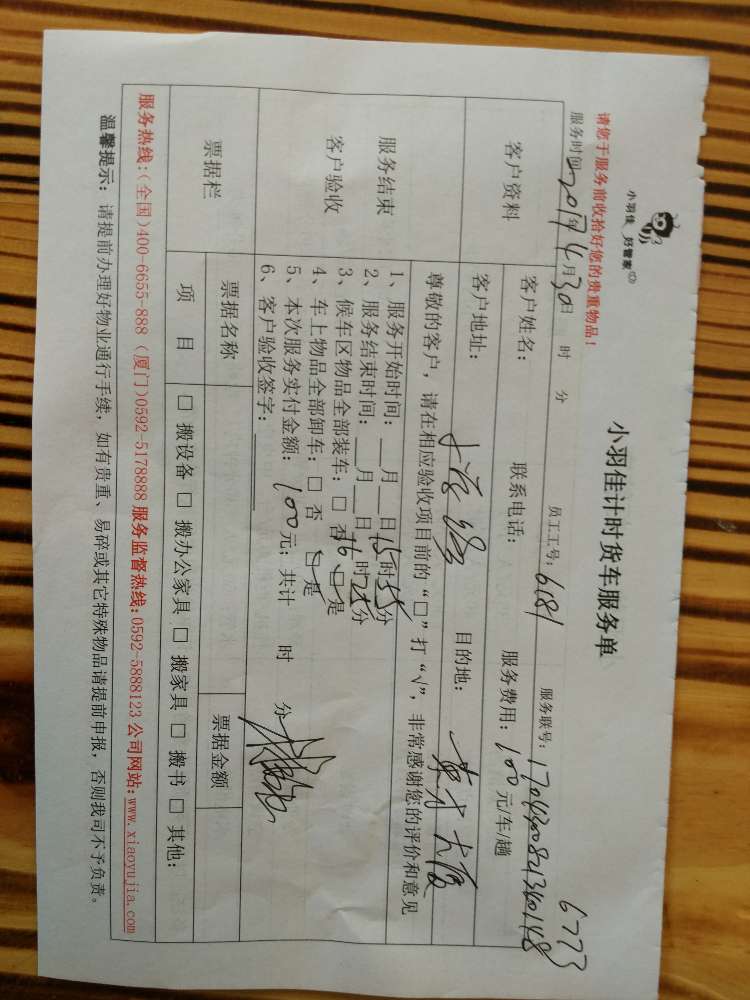 小羽佳 好管家
小羽佳计时货车服务单
6773
请您于服务前收拾好您的贵重物品！
员工工号：6181
服务联号：
服务时间：2017年4月30日 时 分
客户资料
客户姓名：
联系电话：
服务费用：100元/车/趟
客户地址：
目的地：
服务结束
客户验收
尊敬的客户，请在相应验收项目前的“□”打“√”，非常感谢您的评价和意见
1、服务开始时间：__月__日15时55分
2、服务结束时间：__月__日16时25分
3、候车区物品全部装车：□ 否 □ 是
4、车上物品全部卸车：□ 否 □ 是
5、本次服务实付金额：100元；共计 时 分
6、客户验收签字：
票据栏
票据名称
票据金额
项 目
□ 搬设备 □ 搬办公家具 □ 搬家具 □ 搬书 □ 其他：
服务热线：(全国)400-6655-888 (厦门)0592-5178888 服务监督热线：0592-5888123 公司网站：www.xiaoyujia.com
温馨提示：请提前办理好物业通行手续，如有贵重、易碎或其它特殊物品请提前申报，否则我司不予负责。